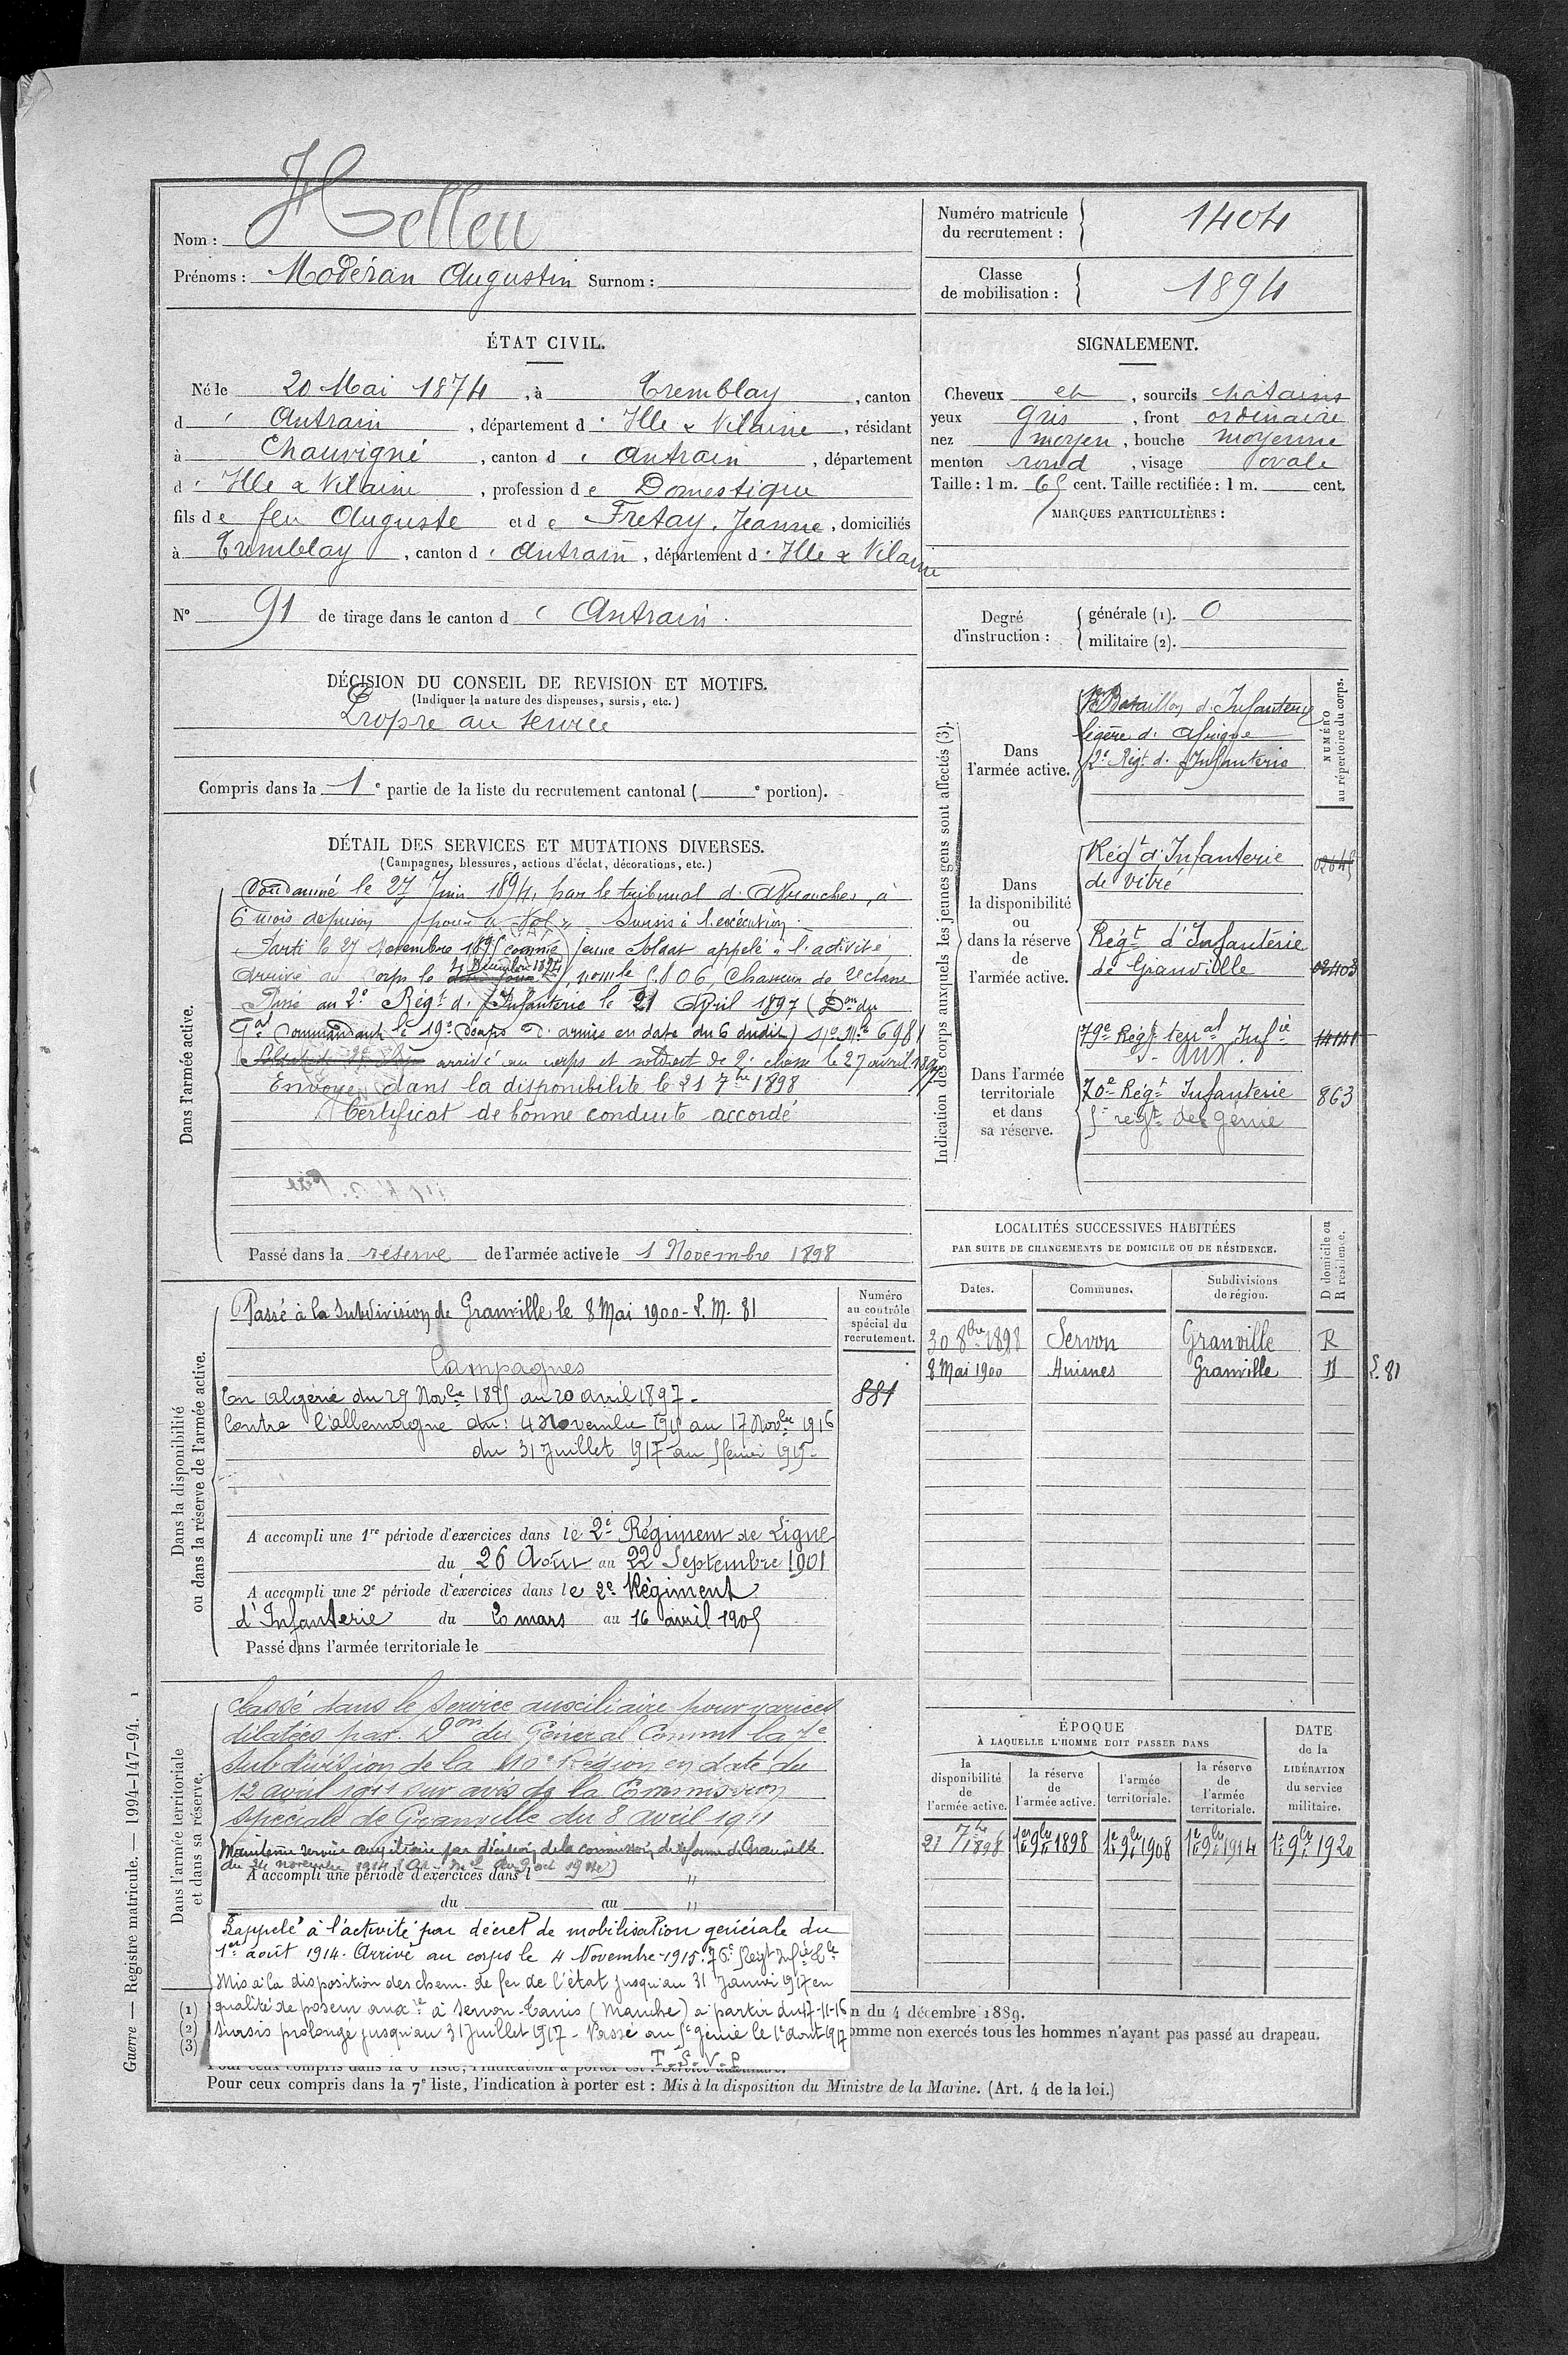 Nom : Helleu
Prénoms : Modéran Augustin Surnom :
Numéro matricule du recrutement : 1404
Classe de mobilisation : 1894
ÉTAT CIVIL.
Né le 20 Mai 1874, à Tremblay, canton
d' Antrain, département d' Ille & Vilaine, résidant
à Chauvigné, canton d' Antrain, département
d' Ille & Vilaine, profession de Domestique
fils de feu Auguste et de Fretay, Jeanne, domiciliés
à Tremblay, canton d' Antrain, département d' Ille & Vilaine
N° 91 de tirage dans le canton d' Antrain.
SIGNALEMENT.
Cheveux et, sourcils chatains
yeux gris, front ordinaire
nez moyen, bouche moyenne
menton rond, visage ovale
Taille : 1 m. 65 cent. Taille rectifiée : 1 m. cent.
MARQUES PARTICULIÈRES :
Degré d'instruction : générale (1). 0
militaire (2).
DÉCISION DU CONSEIL DE REVISION ET MOTIFS.
(Indiquer la nature des dispenses, sursis, etc.)
Propre au service
Compris dans la 1e partie de la liste du recrutement cantonal ( e portion).
DÉTAIL DES SERVICES ET MUTATIONS DIVERSES.
(Campagnes, blessures, actions d'éclat, décorations, etc.)
Dans l'armée active.
Condamné le 27 Juin 1894, par le tribunal d'Avranches, à
6 mois de prison pour " Vol " Sursis à l'exécution.
Parti le 27 Novembre 1895 comme jeune Soldat appelé à l'activité
Arrivé au Corps le, Chasseur de 2e classe
Passé au 2e Régt d'Infanterie le 21 Avril 1897 (Don du
Gal Commandant le 19e Corps d'armée en date du 6 dudit) No Mle 6981
arrivé au corps et soldat de 2e classe le 27 avril 1897
Envoyé dans la disponibilité le 21 7bre 1898
Certificat de bonne conduite accordé
Passé dans la réserve de l'armée active le 1 Novembre 1898
Indication des corps auxquels les jeunes gens sont affectés (3).
NUMÉRO au répertoire du corps.
Dans l'armée active.
Bataillon d'Infanterie
légère d'Afrique
2e Régt d'Infanterie
Dans la disponibilité ou dans la réserve de l'armée active.
Régt d'Infanterie
de Vitré
Régt d'Infanterie
de Granville 02403
Dans l'armée territoriale et dans sa réserve.
79e Régt teral Infie
aux.
70e Régt Infanterie 863
5e régt de génie
Dans la disponibilité ou dans la réserve de l'armée active.
Numéro au contrôle spécial du recrutement.
881
Passé à la Subdivision de Granville le 8 Mai 1900 - S. M. 81
Campagnes
En Algérie du 29 Novbre 1895 au 20 avril 1897 -
Contre l'allemagne du : 4 Novembre 1915 au 17 Novbre 1916
du 31 Juillet 1917 au
A accompli une 1re période d'exercices dans le 2e Régiment de Ligne
du 26 Août au 22 Septembre 1901
A accompli une 2e période d'exercices dans le 2e Régiment
d'Infanterie du 20 mars au 16 avril 1905
Passé dans l'armée territoriale le
LOCALITÉS SUCCESSIVES HABITÉES
PAR SUITE DE CHANGEMENTS DE DOMICILE OU DE RÉSIDENCE.
Dates. Communes. Subdivisions de région. D domicile ou R résidence.
30 8bre 1898 Servon Granville R
8 Mai 1900 Huisnes Granville D S. 81
Dans l'armée territoriale et dans sa réserve.
Classé dans le service auxiliaire pour varices
dilatées par Don du Général Commt la 7e
Subdivision de la 10e Région en date du
12 avril 1911 sur avis de la Commission
spéciale de Granville du 8 avril 1911
Maintenu service auxiliaire par décision de la commission de réforme de Granville
du 24 novembre 1914
A accompli une période d'exercices dans l
du au
Rappelé à l'activité par décret de mobilisation générale du
1er août 1914. Arrivé au corps le 4 Novembre 1915.
Mis à la disposition des chem. de fer de l'état jusqu'au 31 Janvier 1917 en
qualité de poseur auxre à Servon-Tanis (Manche) à partir du 17-11-16
Sursis prolongé jusqu'au 31 Juillet 1917 - Passé au 5e Génie le 1er Aout 1917
T.S.V.P
ÉPOQUE
À LAQUELLE L'HOMME DOIT PASSER DANS
la disponibilité de l'armée active. la réserve de l'armée active. l'armée territoriale. la réserve de l'armée territoriale.
DATE de la LIBÉRATION du service militaire.
21 7bre 1898 1er 9bre 1898 1er 9bre 1908 1er 9bre 1914 1er 9bre 1920
(1)
(2)
(3)
n du 4 décembre 1889.
omme non exercés tous les hommes n'ayant pas passé au drapeau.
Pour ceux compris dans la 7e liste, l'indication à porter est : Mis à la disposition du Ministre de la Marine. (Art. 4 de la loi.)
Guerre — Registre matricule. — 1994-147-94. 1